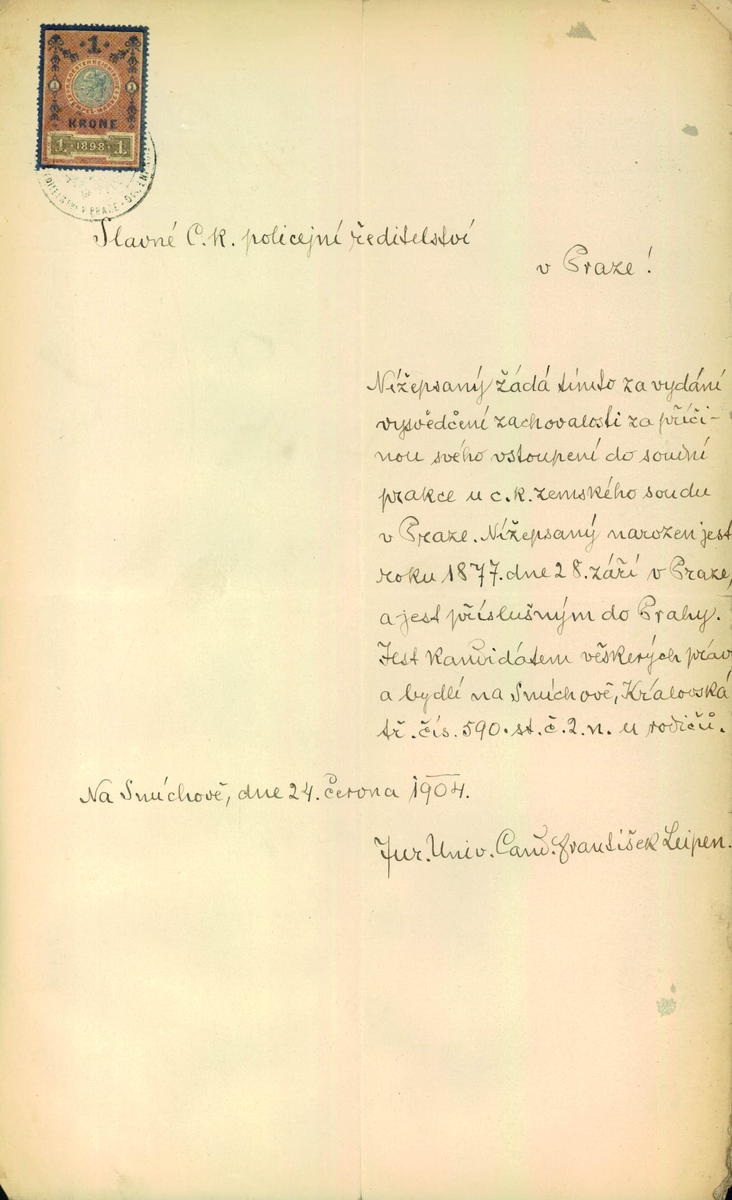 1
KRONE
1 1898 1
Slavné C. k. policejní ředitelství
v Praze!
Nížepsaný žádá tímto za vydání
vysvědčení zachovalosti za příči-
nou svého vstoupení do soudní
prakce u c. k. zemského soudu
v Praze. Nížepsaný narozen jest
roku 1877. dne 28. září v Praze,
a jest příslušným do Prahy.
Jest kandidátem věškerých práv
a bydlí na Smíchově, Královská
tř. čís. 590. st. č. 2. n. u rodičů.
Na Smíchově, dne 24. června 1904.
Jur. Univ. Cand. František Leipen.